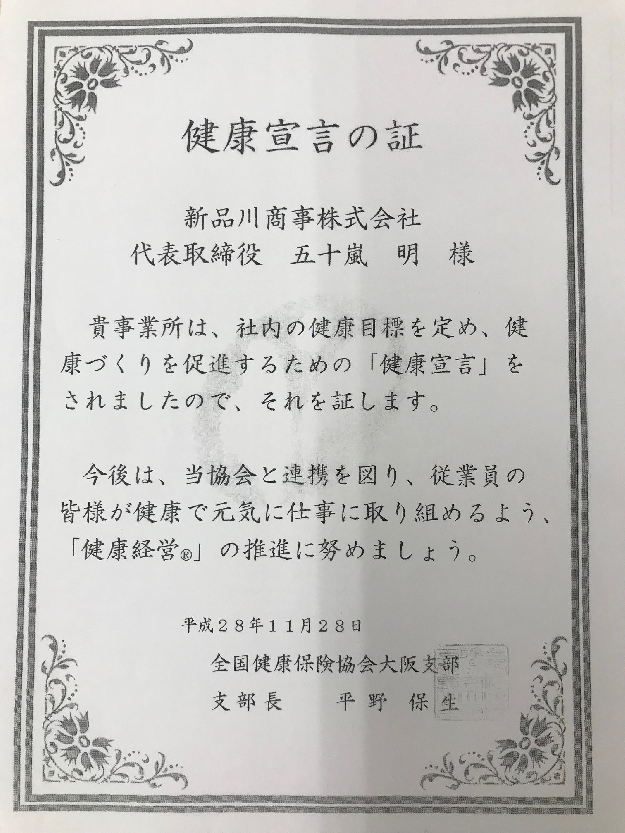 健康宣言の証
新品川商事株式会社
代表取締役　五十嵐　明　様
貴事業所は、社内の健康目標を定め、健
康づくりを促進するための「健康宣言」を
されましたので、それを証します。
今後は、当協会と連携を図り、従業員の
皆様が健康で元気に仕事に取り組めるよう、
「健康経営®」の推進に努めましょう。
平成２８年１１月２８日
全国健康保険協会大阪支部
支部長　　平野　保生